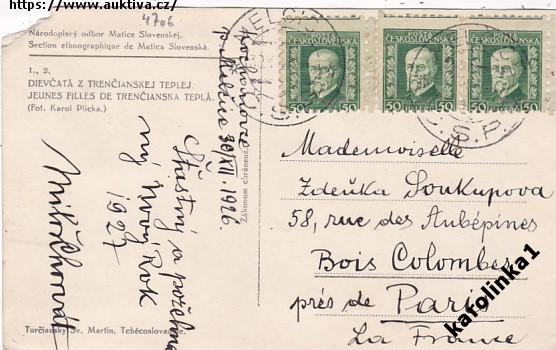 https://www.auktiva.cz/
4706
Národopisný odbor Matice Slovenskej.
Section ethnographique de Matica Slovenská.
1., 2.
DIEVČATÁ Z TRENČIANSKEJ TEPLEJ.
JEUNES FILLES DE TRENČIANSKA TEPLÁ.
(Fot. Karol Plicka.)
30/XII. 1926.
Šťastný a
ný Nový Rok
1927
Zákonom chránené.
Turčiansky Sv. Martin, Tchécoslovaquie.
POŠTA
ČESKOSLOVENSKÁ
50 50
POŠTA
ČESKOSLOVENSKÁ
50 50
POŠTA
ČESKOSLOVENSKÁ
50 50
Mademoiselle
Zdeňka Soukupova
58, rue des Aubépines
Bois Colombes
prés de Paris
La France
karolinka1